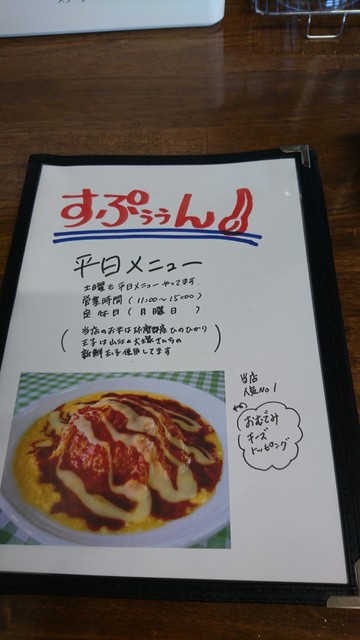 すぷぅぅん
平日メニュー
土曜も平日メニューやってます
営業時間（11:00～15:00）
定休日（月曜日）
当店のお米は球磨郡産ひのひかり
玉子は山江の大塚さんちの
新鮮玉子使用してます
当店
人気No1
おむでみ
チーズ
トッピング